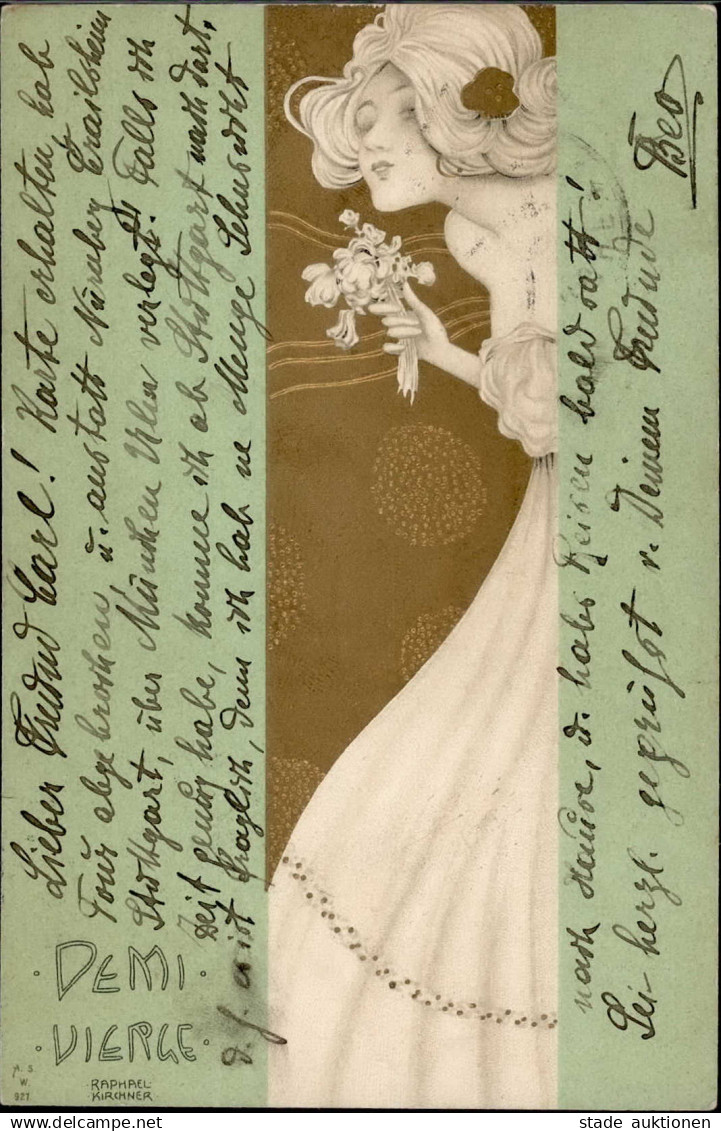 Lieber Freund Carl! Karte erhalten hab
Tour abgebrochen u. anstatt Nürnberg Crailsheim
Stuttgart, über München Ulm verlegt! Falls ich
Zeit genug habe, komme ich ab Stuttgart nach dort,
d. h. es ist fraglich, denn ich hab ne Menge Sehnsucht
nach Hause, u. habs Reisen bald satt!
Sei herzl. gegrüßt v. Deinem Freunde
Beo
·DEMI·
·VIERGE·
A. S.
W.
921
·RAPHAEL·
KIRCHNER·
stade auktionen